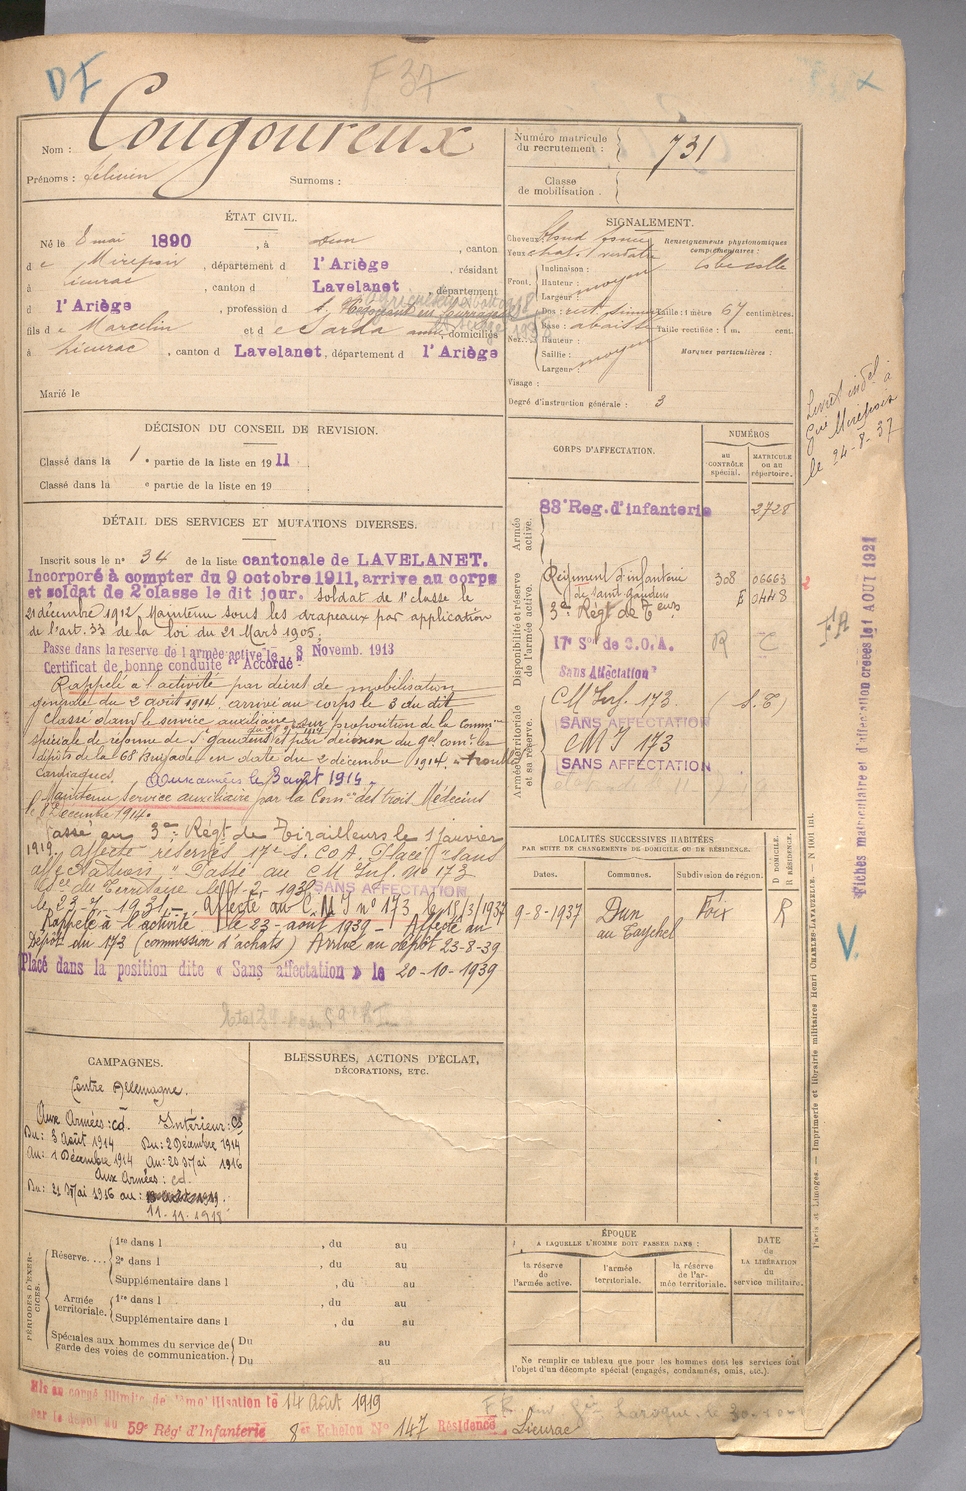 DF
F 37
Nom : Cougoureux
Prénoms : Surnoms :
Numéro matricule du recrutement : 731
Classe de mobilisation :
ÉTAT CIVIL.
Né le 8 mai 1890, à Dun, canton
de Mirepoix, département d l'Ariège, résidant
à Lieurac, canton d Lavelanet, département
d l'Ariège, profession d
fils de Marcelin et de Sarda, domiciliés
à Lieurac, canton d Lavelanet, département d l'Ariège
Marié le
SIGNALEMENT.
Cheveux blond foncé
Yeux
Renseignements physionomiques complémentaires :
Front. Inclinaison :
Hauteur : moyen
Largeur :
Nez. Dos :
Base :
Hauteur :
Saillie : moyen
Largeur :
Taille : 1 mètre 67 centimètres.
Taille rectifiée : 1 m. cent.
Marques particulières :
Visage :
Degré d'instruction générale : 3
DÉCISION DU CONSEIL DE REVISION.
Classé dans la 1e partie de la liste en 1911
Classé dans la e partie de la liste en 19
DÉTAIL DES SERVICES ET MUTATIONS DIVERSES.
Inscrit sous le n° 34 de la liste cantonale de LAVELANET.
Incorporé à compter du 9 octobre 1911, arrive au corps
et soldat de 2e classe le dit jour. Soldat de 1e classe le
21 décembre 1912. Maintenu sous les drapeaux par application
de l'art. 33 de la loi du 21 Mars 1905;
Passe dans la réserve de l'armée active le 8 Novemb. 1913
Certificat de bonne conduite "Accordé"
Rappelé à l'activité par décret de mobilisation
générale du 2 août 1914. arrivé au corps le 3 du dit
Classé dans le service auxiliaire sur proposition de la Common
spéciale de réforme de St gaudens et par décision du gal comt les
dépôts de la 68 Brigade en date du 2 décembre 1914. "troubles
cardiaques. Aux armées le 3 août 1914.
Maintenu service auxiliaire par la Comon des trois Médecins
Décembre 1914.
Passé au 3e Régt de Tirailleurs le 1 janvier
1919. affecté réserves 17e S. COA. Placé "sans
affectation" Passé au CM Inf. n° 173
SANS AFFECTATION
le 23-7-1931 - Affecté au C.M.I n° 173, le 18/3/1937
Rappelé à l'activité le 23-août 1939 - Affecté au
Dépôt du 173 (commission d'achats) Arrivé au dépôt 23-8-39
Placé dans la position dite « Sans affectation » le 20-10-1939
CORPS D'AFFECTATION.
NUMÉROS
au CONTRÔLE spécial.
MATRICULE ou au répertoire.
Armée active.
83e Reg. d'infanterie 2728
Disponibilité et réserve de l'armée active.
Régiment d'infanterie de Saint Gaudens 308 06663
3e Régt de Teurs E 0448
17e Son de C.O.A. R C
Sans Affectation
Armée territoriale et sa réserve.
CM Inf. 173 (S.C)
SANS AFFECTATION
CMI 173
SANS AFFECTATION
LOCALITÉS SUCCESSIVES HABITÉES
PAR SUITE DE CHANGEMENTS DE DOMICILE OU DE RÉSIDENCE.
Dates. Communes. Subdivision de région. D DOMICILE. R RÉSIDENCE.
9-8-1937 Dun Foix R
CAMPAGNES.
Contre Allemagne.
Aux Armées : cd. Intérieur : CS
Du : 3 Août 1914 Du : 2 Décembre 1914
Au : 1 Décembre 1914 Au : 20 Mai 1916
Aux Armées : cd.
Du : 21 Mai 1916 au :
11-11-1918
BLESSURES, ACTIONS D'ÉCLAT,
DÉCORATIONS, ETC.
PÉRIODES D'EXERCICES.
Réserve.... 1re dans l , du au
2e dans l , du au
Supplémentaire dans l , du au
Armée territoriale. 1re dans l , du au
Supplémentaire dans l , du au
Spéciales aux hommes du service de garde des voies de communication. Du au
Du au
ÉPOQUE
A LAQUELLE L'HOMME DOIT PASSER DANS :
la réserve de l'armée active.
l'armée territoriale.
la réserve de l'armée territoriale.
DATE de LA LIBÉRATION du service militaire.
Ne remplir ce tableau que pour les hommes dont les services font
l'objet d'un décompte spécial (engagés, condamnés, omis, etc.).
Mis en congé illimité de démobilisation le 14 Août 1919
par le dépôt du 59e Rég' d'Infanterie 8e Echelon N° 147 Résidence Lieurac
Livret indel à
Gie Mirepoix
le 24-8-37
FA
Fiches matriculaire et d'affectation créées le 1 AOUT 1921
V.
Paris et Limoges. — Imprimerie et librairie militaires Henri CHARLES-LAVAUZELLE. — N 1001 int.